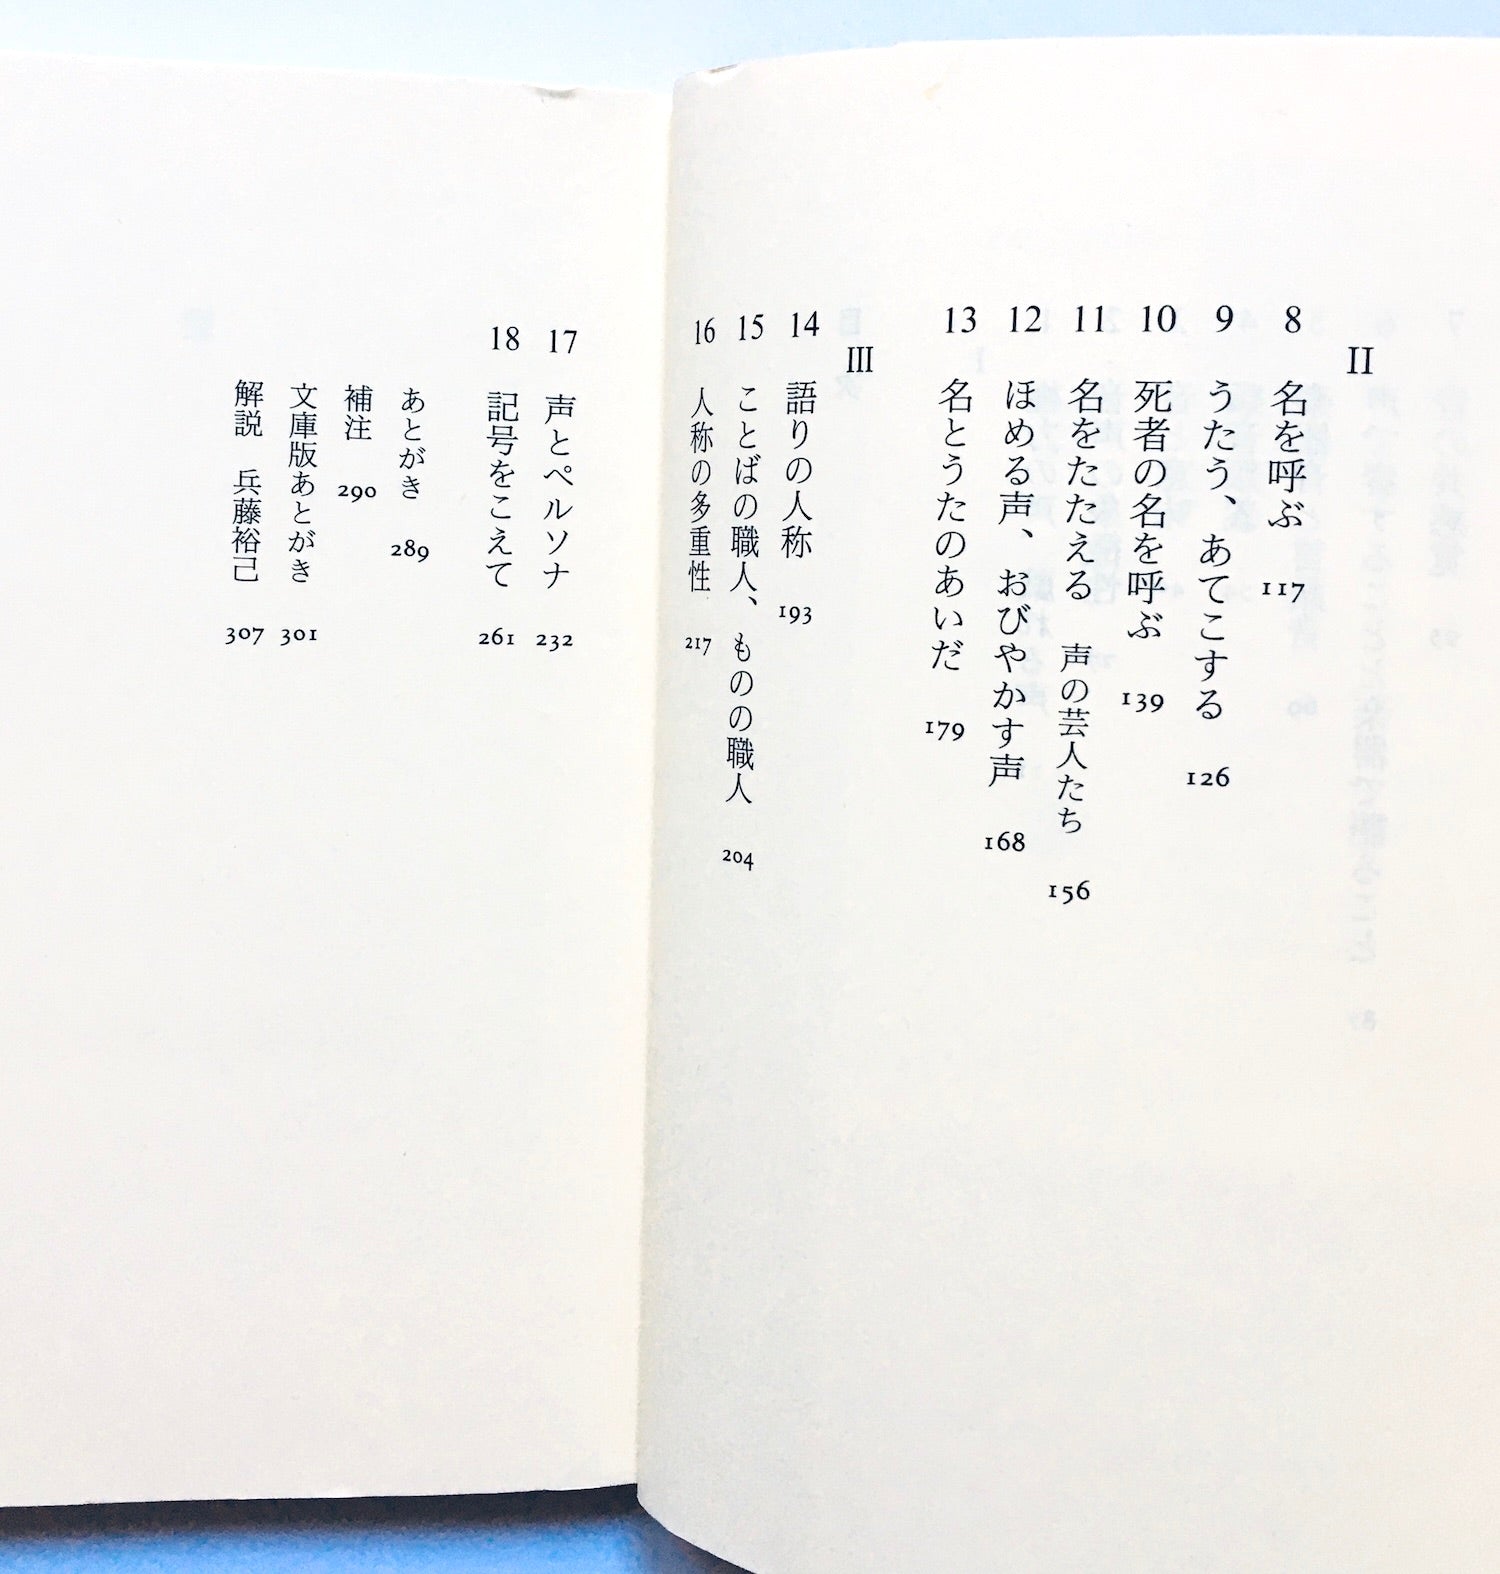 II
8 名を呼ぶ 117
9 うたう、あてこする 126
10 死者の名を呼ぶ 139
11 名をたたえる 声の芸人たち 156
12 ほめる声、おびやかす声 168
13 名とうたのあいだ 179
III
14 語りの人称 193
15 ことばの職人、ものの職人 204
16 人称の多重性 217
17 声とペルソナ 232
18 記号をこえて 261
あとがき 289
補注 290
文庫版あとがき 301
解説 兵藤裕己 307